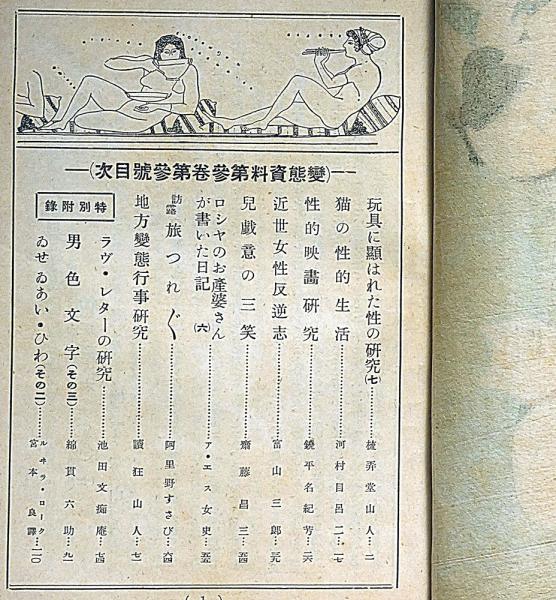 —(變態資料第參卷第參號目次)—
玩具に顯はれた性の研究(七)……梳弄堂山人…二
猫の性的生活……河村目呂二…一七
性的映畫研究……饒平名紀芳…二六
近世女性反逆志……富山三郎…三九
兒戯意の三笑……齋藤昌三…五四
ロシヤのお產婆さんが書いた日記(六)……ア・エス女史…五五
訪露旅つれ〴〵……阿里野すさび…六四
地方變態行事研究……讀狂山人…七一
特別附錄
ラヴ・レターの研究……池田文痴庵…七四
男色文字(その三)……綿貫六助…九一
ゐせゐあい・ひわ(その二)……ルヰラ・ローク 宮本良譯…一一〇
(1)